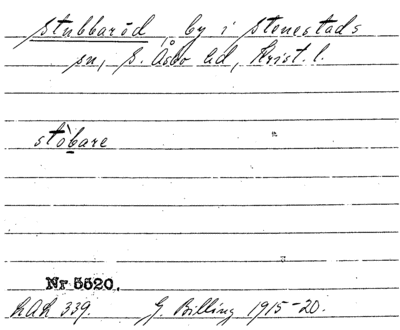 Stubbaröd, by i Stenestads
sn, S. Åsbo hd, Krist. l.
stòbare "
Nr 5520.
LAL 339. G. Billing 1915-20.